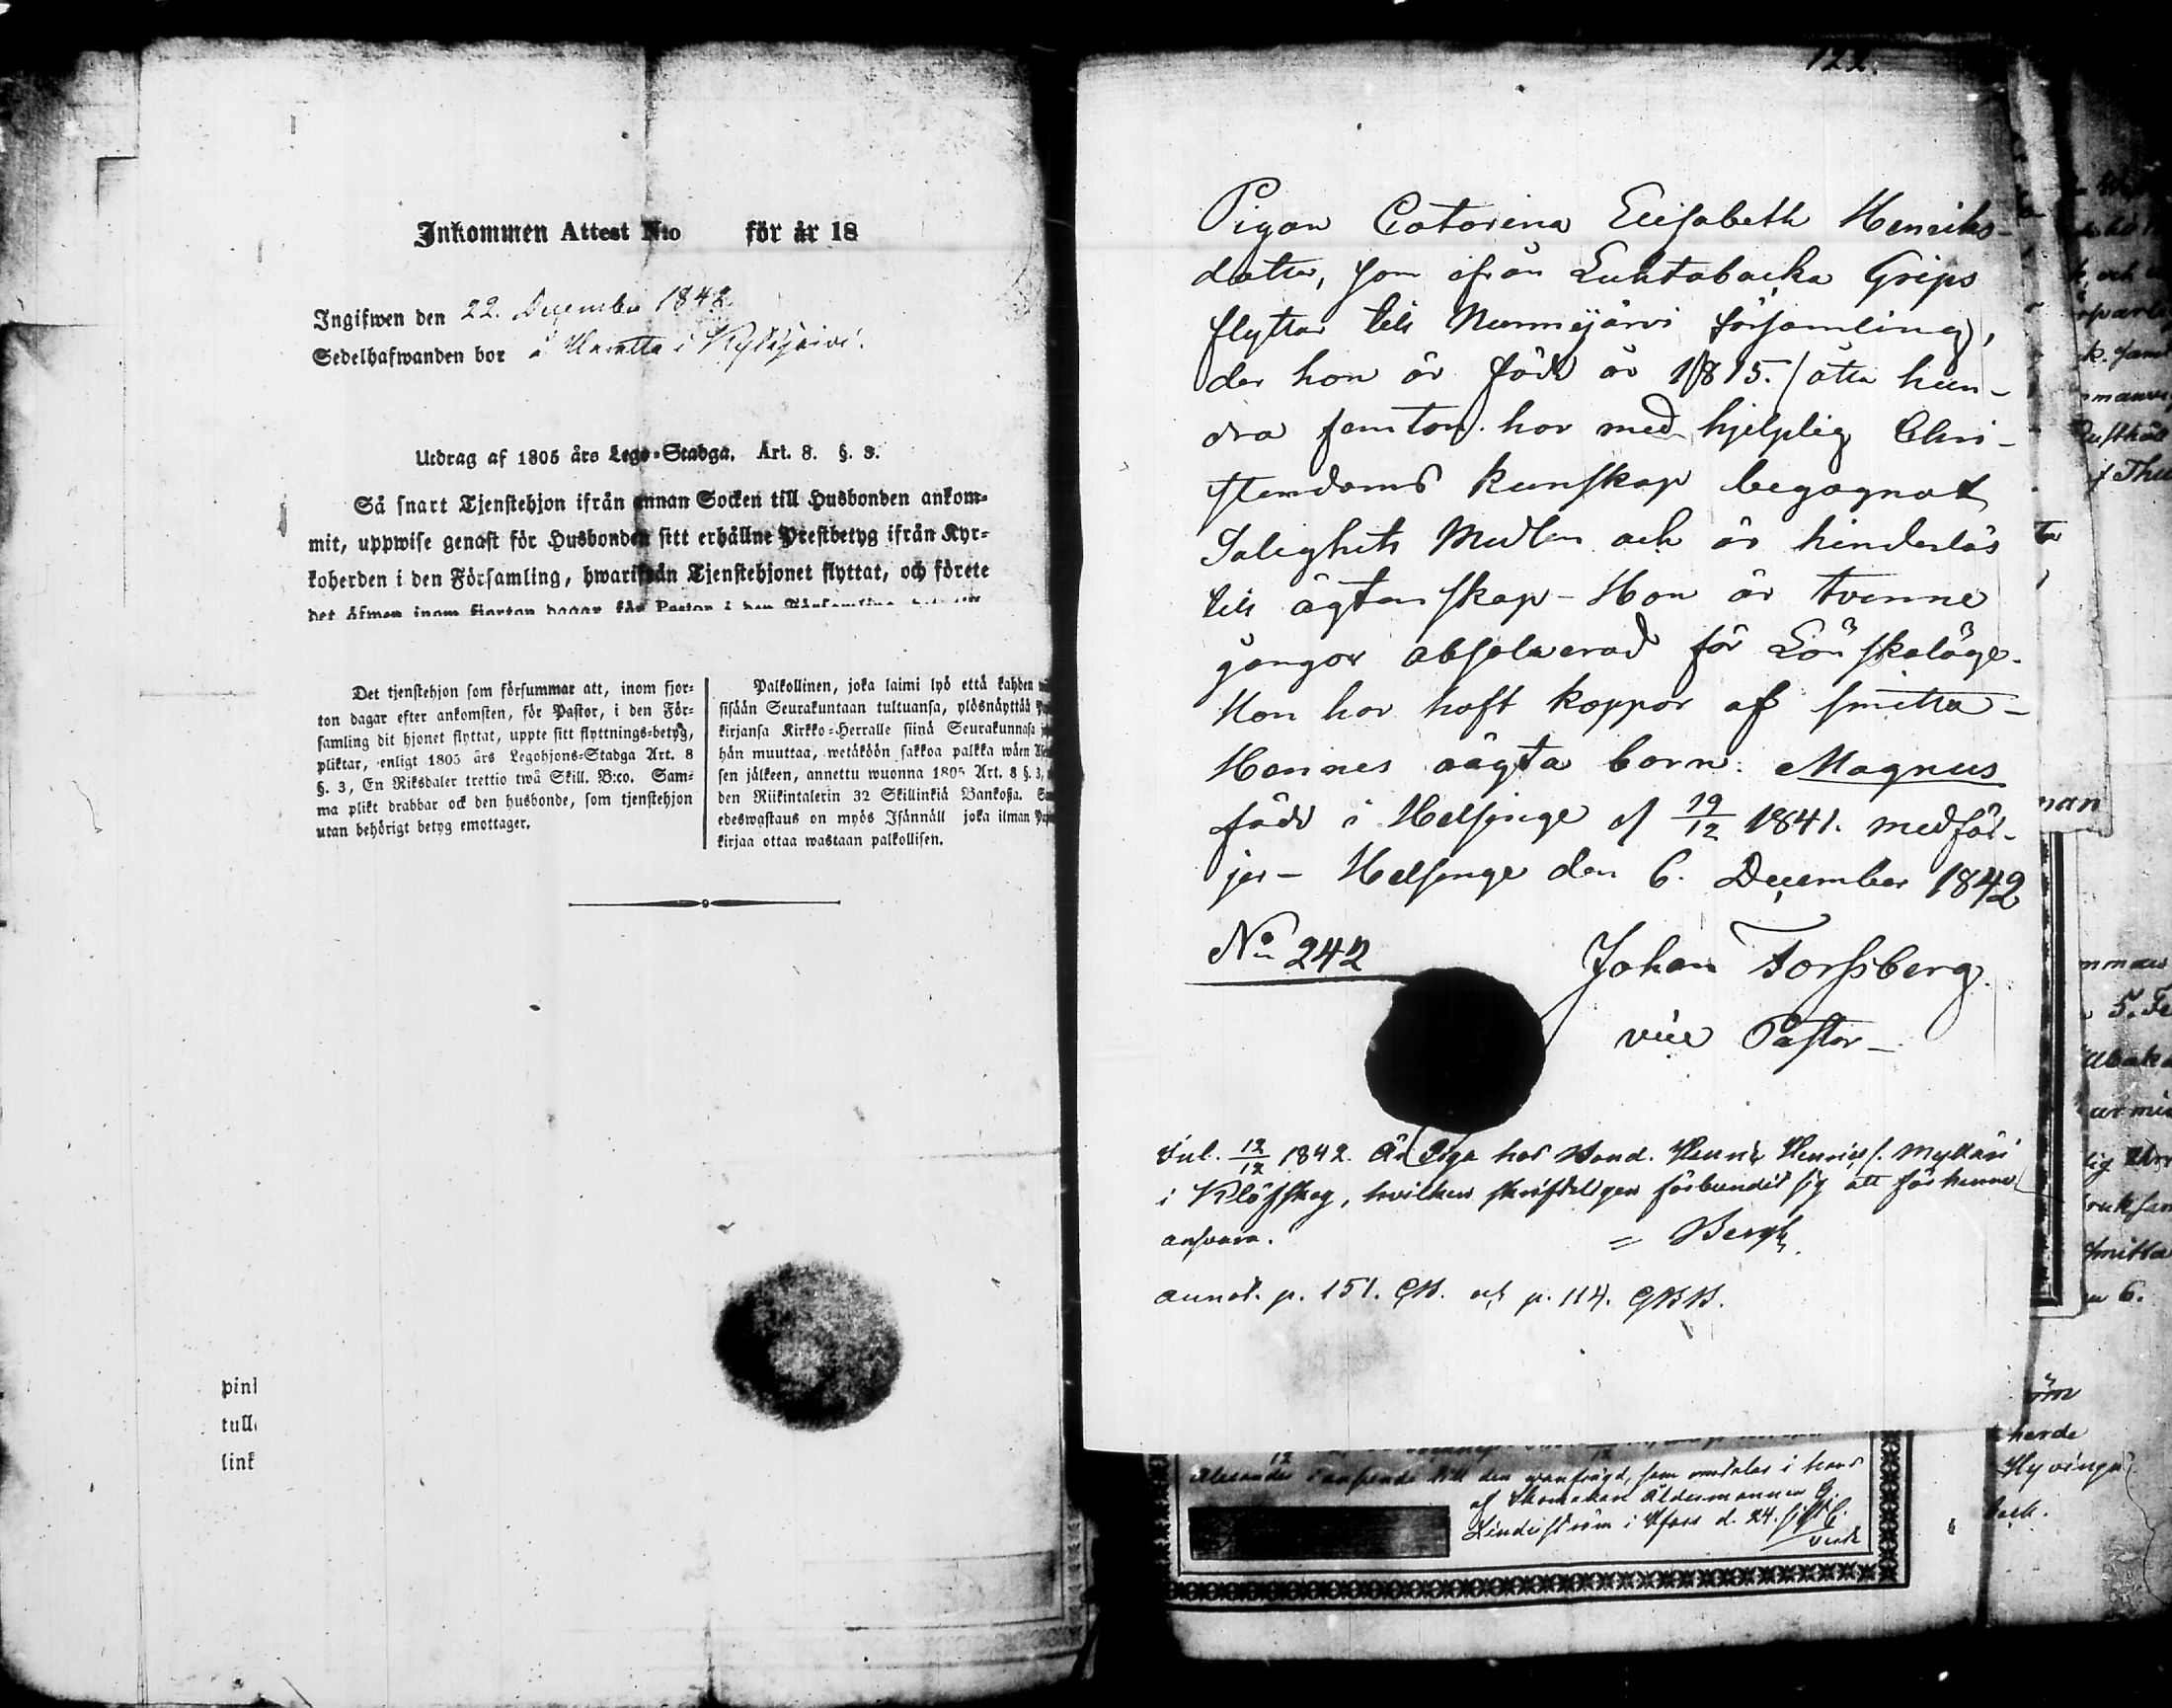 Inkommen Attest Nto för år 18
Ingifwen den 22. December 1842.
Sedelhafwanden bor å i Kyläjärvi.
Utdrag af 1805 års Lego-Stadga. Art. 8. §. 3.
Så snart Tjenstehjon ifrån annan Socken till Husbonden ankom-
mit, uppwise genast för Husbonden sitt erhållne Prestbetyg ifrån Kyr-
koherden i den Församling, hwarifrån Tjenstehjonet flyttat, och förete
det äfwen inom fjorton dagar för Pastor i den Församling
Det tjenstehjon som försummar att, inom fjor-
ton dagar efter ankomsten, för Pastor, i den För-
samling dit hjonet flyttat, uppte sitt flyttnings-betyg,
pliktar, enligt 1805 års Legohjons-Stadga Art. 8
§. 3, En Riksdaler trettio twå Skill. B:co. Sam-
ma plikt drabbar ock den husbonde, som tjenstehjon
utan behörigt betyg emottager.
Palkollinen, joka laimi lyö että kahden
sisään Seurakuntaan tultuansa, ylösnäyttää
kirjansa Kirkko-Herralle siinä Seurakunnasa
hän muuttaa, wetäköön sakkoa palkka wäen
sen jälkeen, annettu wuonna 1805 Art. 8 §. 3,
den Riikintalerin 32 Skillinkiä Bankosa.
edeswastaus on myös Isännäll joka ilman
kirjaa ottaa wastaan palkollisen.
pinl
tull
link
122.
Pigan Catarina Elisabeth Henriks-
dotter, som ifrån Luhtabacka Grips
flyttar till Nurmijärvi församling,
der hon är född år 1815. / åtta hun-
dra femton. har med hjelplig Chri-
stendoms kunskap begagnat
Salighets Medlen och är hinderlös
till ägtenskap - Hon är tvenne
gånger absolverad för Lönskaläge.
Hon har haft koppor af smitta -
Hennes oägta barn: Magnus
född i Helsinge d 19/12 1841. medföl-
jer - Helsinge den 6. December 1842
No 242
Johan Forssberg.
vice Pastor -
12/12 1842. Är Piga hos Bond. Henr. Henricss. Mylläri
i Klöfskog, hvilken skrifteligen förbundit sig att för henne
ansvara. = Bergh.
annot. p. 151. och p. 114.
Alexander i anseende till den som omtalas i hans
af Åldermannen G.
Lindeström i Hfors d. 24.
man
5. Fe
smitta
6.
herde
Hyvinge